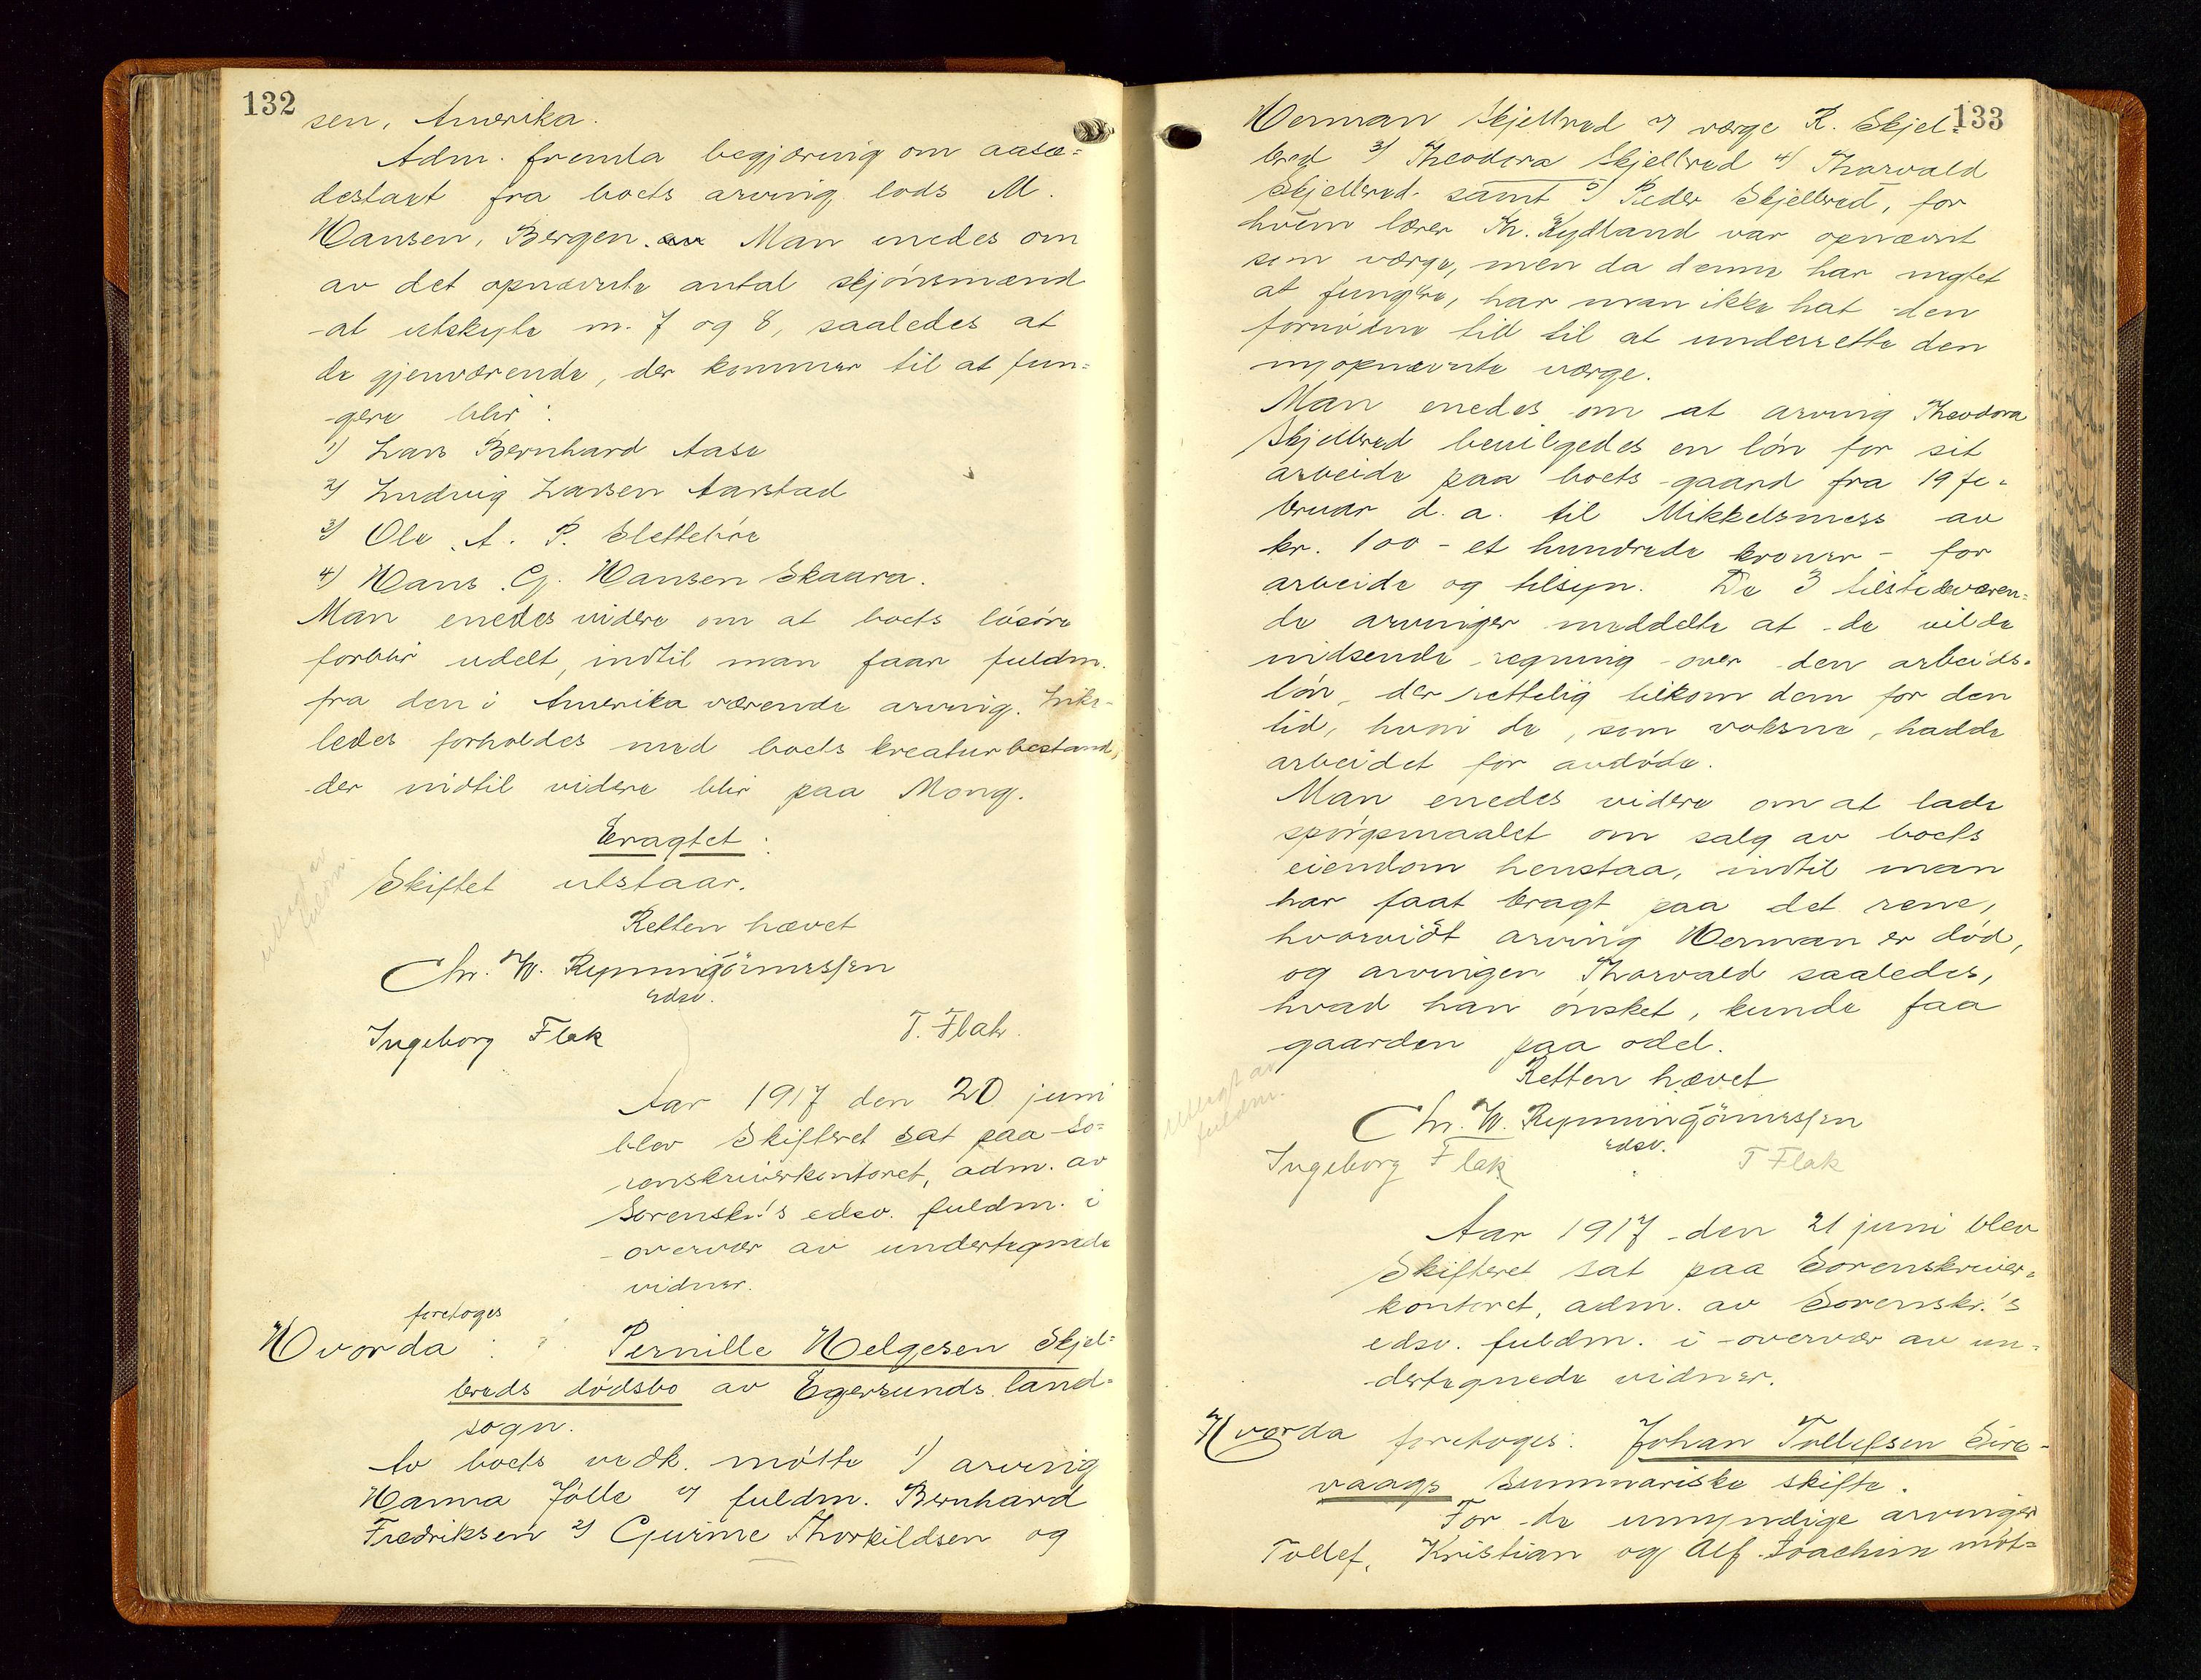 132
sen, Amerika.
Adm. fremla begjæring om aasæ=
destakt fra boets arving lods M.
Hansen, Bergen. Man enedes om
av det opnævnte antal skjönsmænd
at utskyte nr. 7 og 8, saaledes at
de gjenværende, der kommer til at fun=
gere blir:
1) Lars Bernhard Aase
2) Ludvig Larsen Aarstad
3) Ole A. P. Sletteböe
4) Hans G. Hansen Skaara.
Man enedes videre om at boets lösöre
forblir udelt, indtil man faar fuldm.
fra den i Amerika værende arving. Like-
ledes forholdes med boets kreaturbestand,
der indtil videre blir paa Mong.
Eragtet:
Skiftet utstaar.
utlagt av
fuldm.
Retten hævet
Chr. W. Rynning Tönnessen
edsv.
Ingeborg Flak T. Flak.
Aar 1917 den 20 juni
blev Skifteret sat paa So=
renskriverkontoret, adm. av
Sorenskr.'s edsv. fuldm. i
overvær av undertegnede
vidner.
Hvorda foretoges: Pernille Helgesen Skjel=
breds dödsbo av Egersunds land=
sogn.
Av boets vedk. mötte 1) arving
Hanna Jölle v/ fuldm. Bernhard
Fredriksen 2) Gurine Thorkildsen og
133
Herman Skjelbred v/ værge R. Skjel=
bred 3) Theodora Skjelbred 4) Thorvald
Skjelbred samt 5) Peder Skjelbred, for
hvem lærer Kr. Rydland var opnævnt
som værge, men da denne har negtet
at fungere, har man ikke hat den
fornödne tid til at underrette den
nyopnævnte værge.
Man enedes om at arving Theodora
Skjelbred bevilgedes en lön for sit
arbeide paa boets gaard fra 19 fe=
bruar d. a. til Mikkelsmess av
kr. 100 - et hundrede kroner - for
arbeide og tilsyn. De 3 tilstedeværen=
de arvinger meddelte at de vilde
indsende regning over den arbeids=
lön, der rettelig tilkom dem for den
tid, hvori de, som voksne, hadde
arbeidet for avdöde.
Man enedes videre om at lade
spörgsmaalet om salg av boets
eiendom henstaa, indtil man
har faat bragt paa det rene,
hvorvidt arving Herman er död,
og arvingen Thorvald saaledes,
hvad han önsket, kunde faa
gaarden paa odel.
Retten hævet
utlagt av
fuldm.
Chr. W. Rynning Tönnessen
edsv.
Ingeborg Flak T Flak
Aar 1917 den 21 juni blev
Skifteret sat paa Sorenskriver=
kontoret, adm. av Sorenskr.'s
edsv. fuldm. i overvær av un=
dertegnede vidner.
Hvorda foretoges: Johan Tollefsen Sire=
vaags summariske skifte.
For de umyndige arvinger
Tollef, Kristian og Alf Joachim möt=